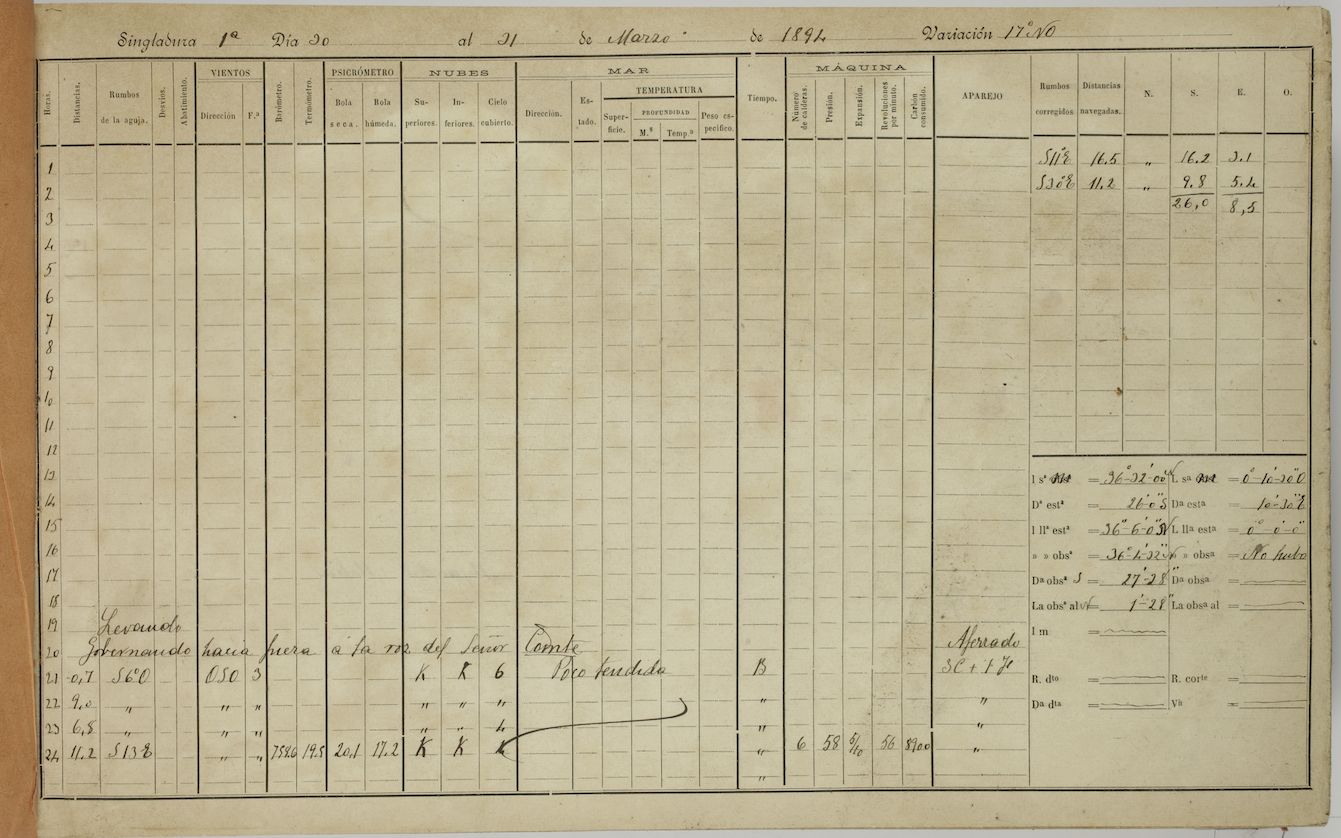 Singladura 1ª Día 30 al 31 de Marzo de 1894 Variación 17° NO
Horas. Distancias. Rumbos de la aguja. Desvíos. Abatimiento. VIENTOS Dirección F.ª Barómetro. Termómetro. PSICRÓMETRO Bola seca. Bola húmeda. NUBES Superiores. Inferiores. Cielo cubierto. MAR Dirección. Estado. TEMPERATURA Superficie. PROFUNDIDAD M.s Temp.ª Peso específico. Tiempo. MÁQUINA Número de calderas. Presión. Expansión. Revoluciones por minuto. Carbón consumido. APAREJO Rumbos corregidos Distancias navegadas. N. S. E. O.
1 S11°E 16.5 " 16.2 3.1
2 S30°E 11.2 " 9.8 5.4
3 26,0 8,5
4
5
6
7
8
9
10
11
12
13
14
15
16
17
18
19 Levando
20 Gobernando hacia fuera á la voz del Señor Comte Aferrado
21 0,7 S6°O OSO 3 K K 6 Poco tendida B 3C + 1
22 9.0 " " " " " " " "
23 6,8 " " " " " 4 " "
24 11.2 S13E " " 758.6 19.5 20,1 17.2 K K " 6 58 5/10 56 8900 "
"
l sª = 36°-32'-00"N L sa = 0°-10'-30"O
Dª estª = 26'-0"S Da esta = 10'-30"E
l llª estª = 36°-6'-0"N L lla esta = 0°-0'-0"
» » obsª = 36°-4'-32"N » obsa = No hubo
Da obsª S = 27'-28" Da obsa =
La obsª al N = 1'-28" La obsa al =
l m =
R. dto = R. corte =
Da dta = Vn =